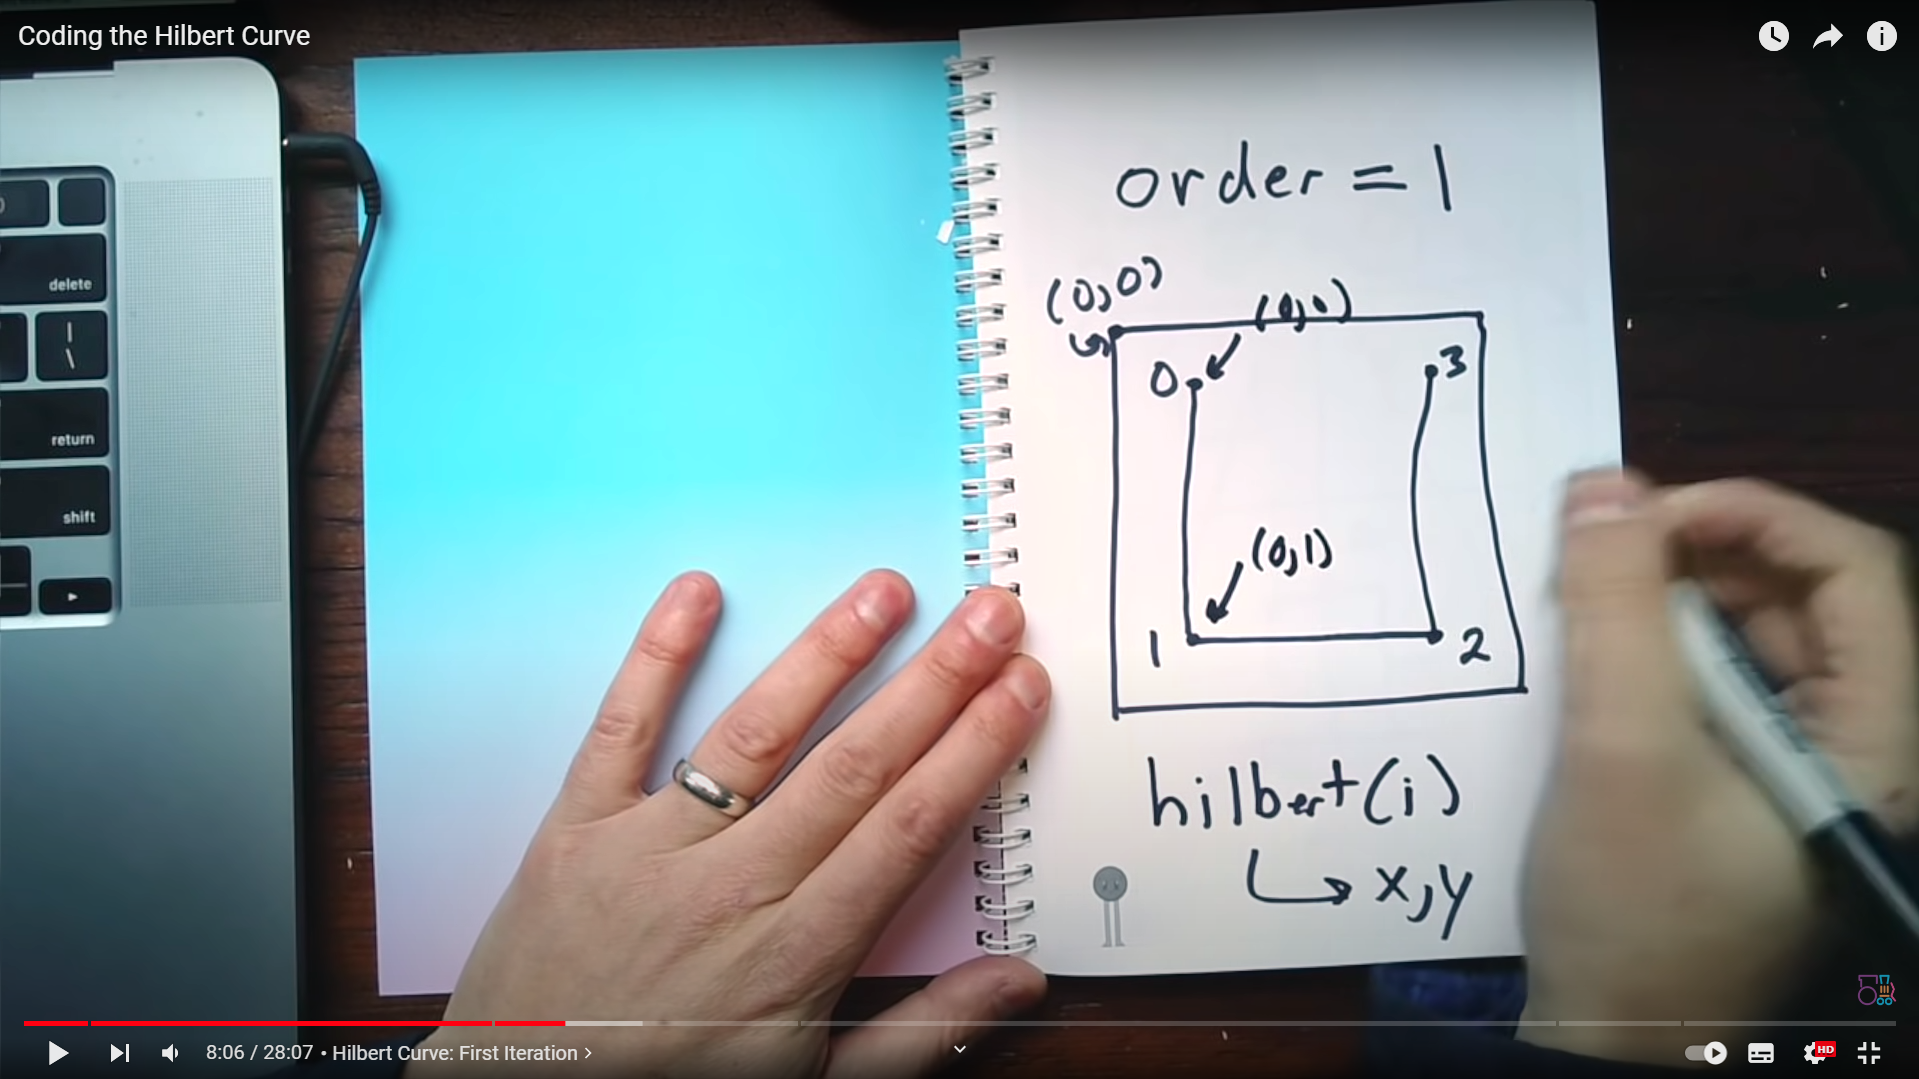 Coding the Hilbert Curve
delete
|
\
return
shift
order = 1
(0,0)
(0,0)
0
3
(0,1)
1
2
hilbert(i)
x,y
8:06 / 28:07 • Hilbert Curve: First Iteration >
HD